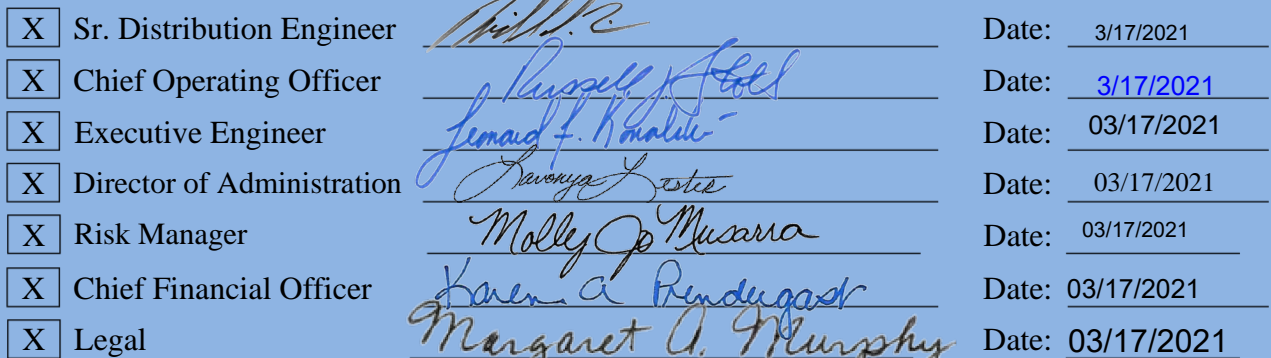 X Sr. Distribution Engineer Date: 3/17/2021
X Chief Operating Officer Russell J Stoll Date: 3/17/2021
X Executive Engineer Leonard F. Kowalski Date: 03/17/2021
X Director of Administration Lavonya Lester Date: 03/17/2021
X Risk Manager Molly Jo Musarra Date: 03/17/2021
X Chief Financial Officer Karen A Prendergast Date: 03/17/2021
X Legal Margaret A. Murphy Date: 03/17/2021